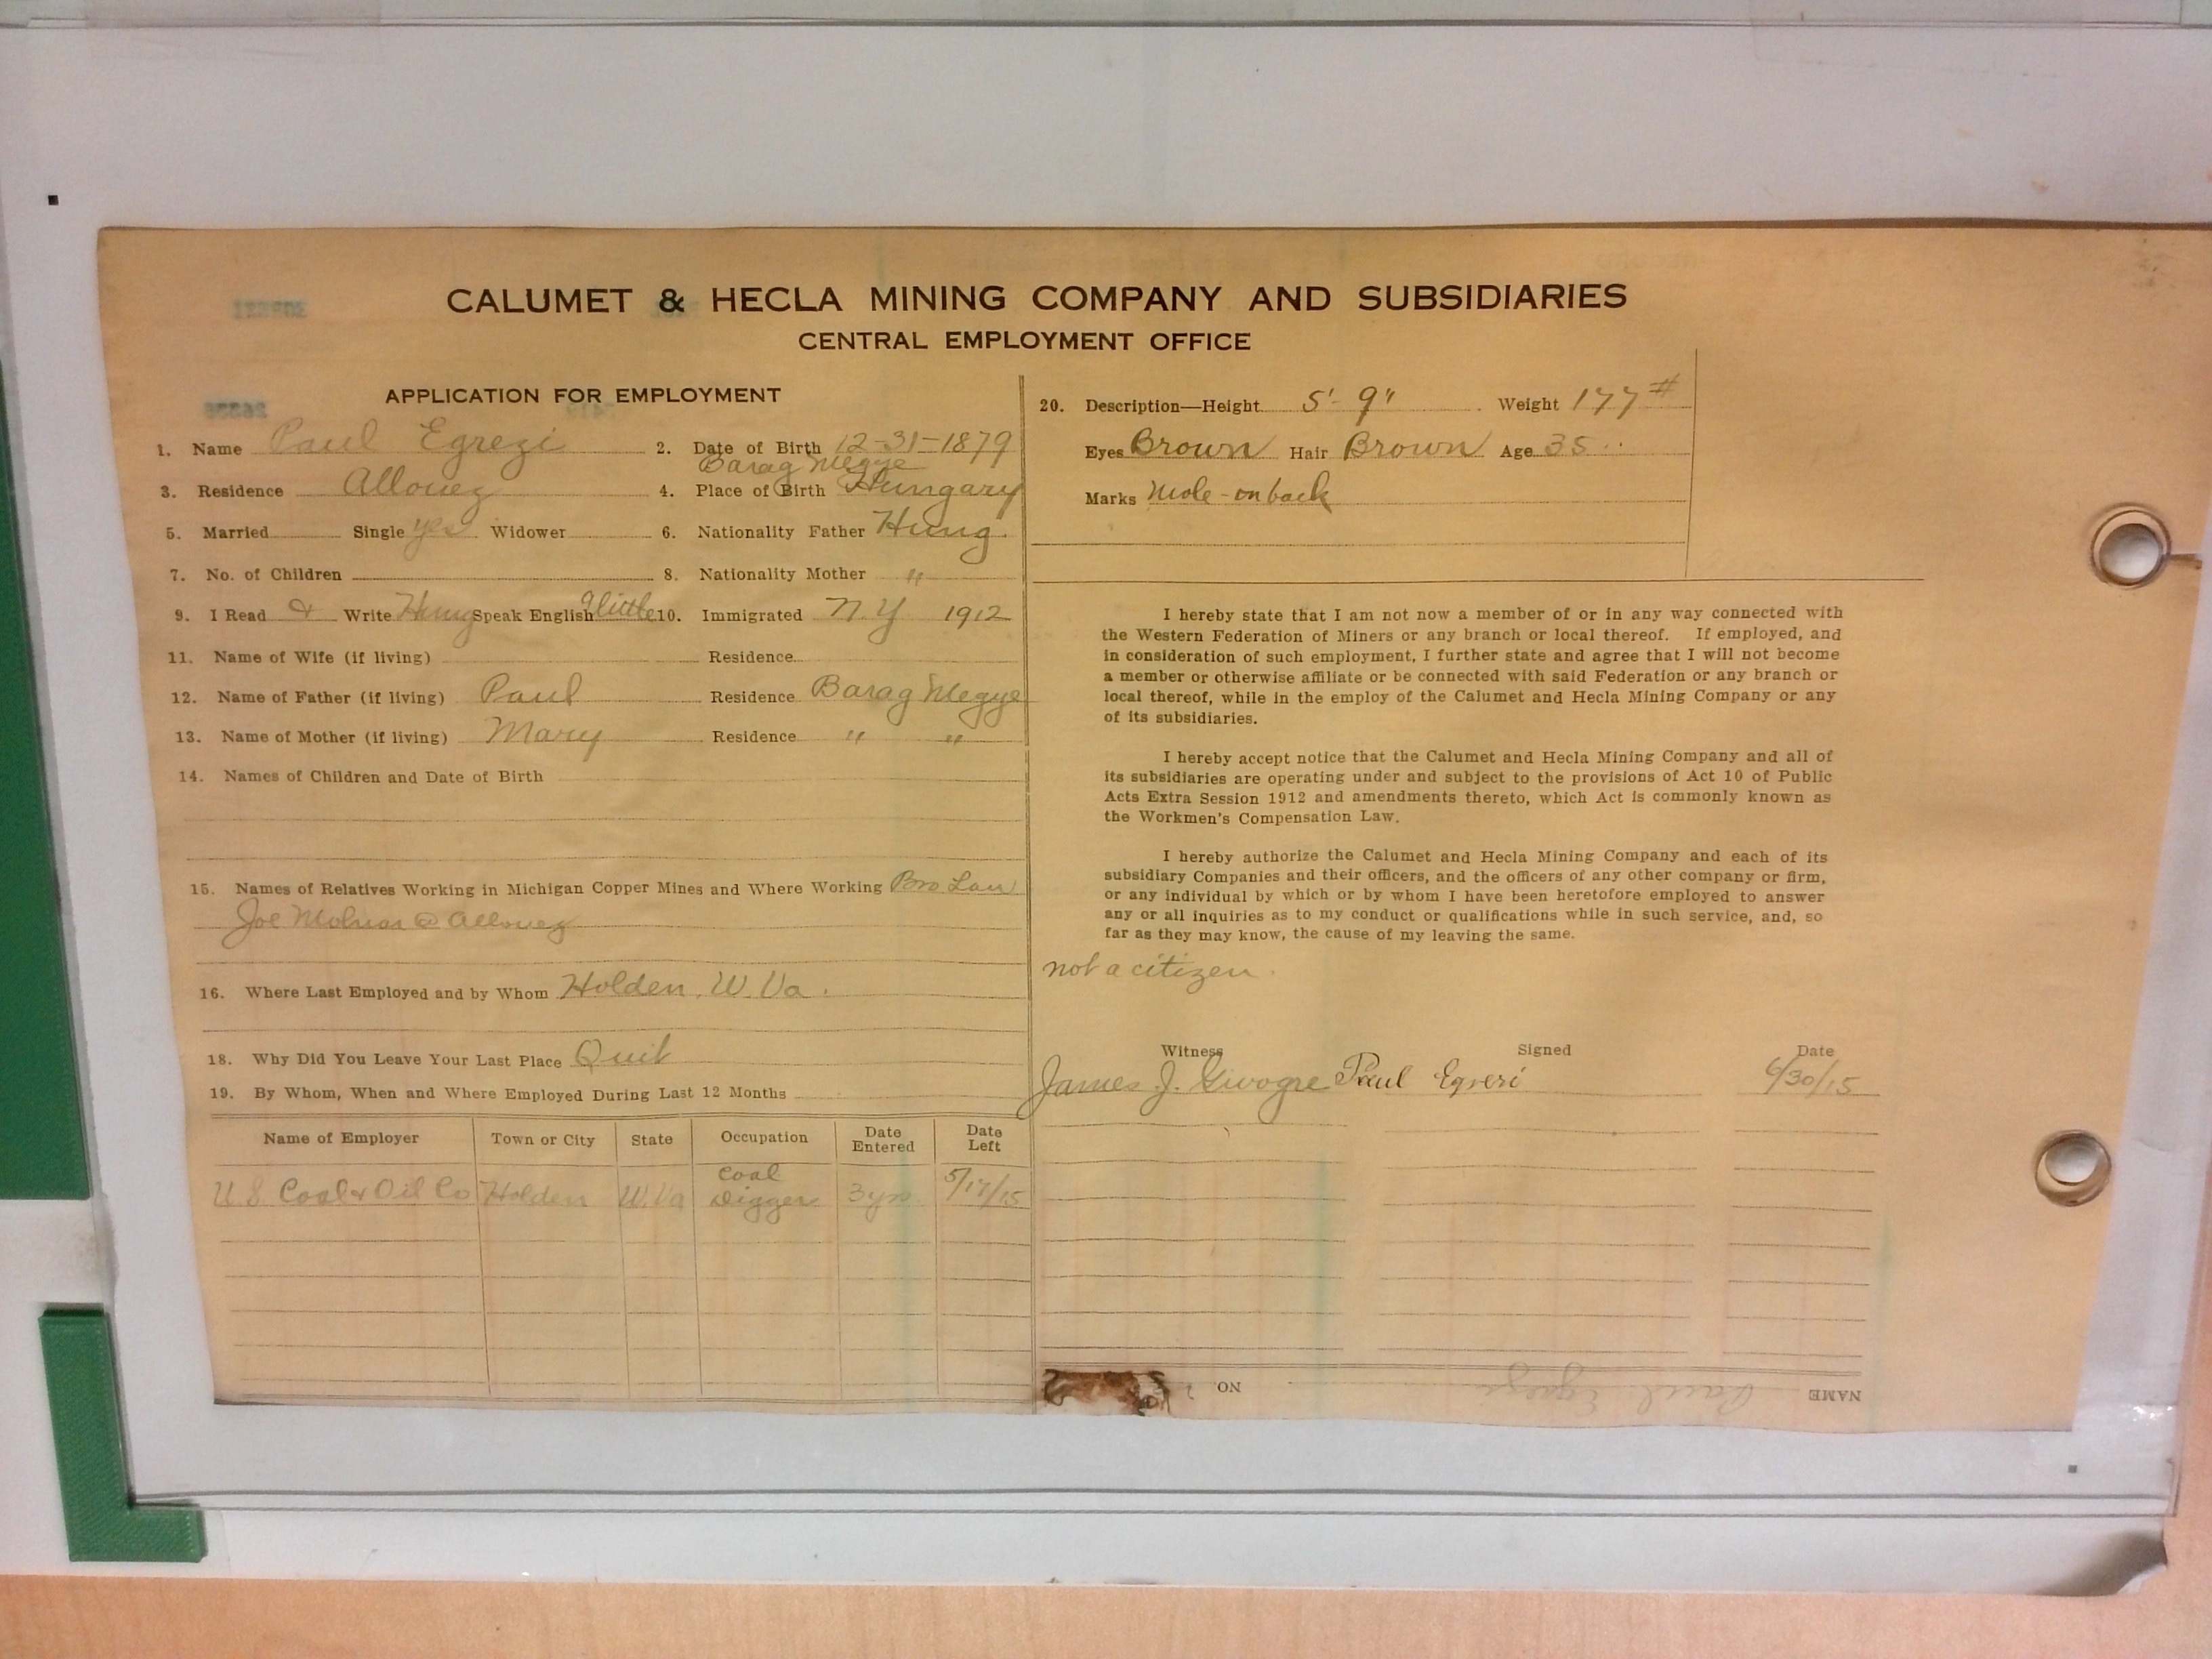 CALUMET & HECLA MINING COMPANY AND SUBSIDIARIES
CENTRAL EMPLOYMENT OFFICE
APPLICATION FOR EMPLOYMENT
1. Name Paul Egrezi 2. Date of Birth 12-31-1879
Barag Megye
3. Residence Allouez 4. Place of Birth Hungary
5. Married Single yes Widower 6. Nationality Father Hung.
7. No. of Children 8. Nationality Mother "
9. I Read & Write Hung Speak English a little 10. Immigrated N.Y 1912
11. Name of Wife (if living) Residence
12. Name of Father (if living) Paul Residence Barag Megye
13. Name of Mother (if living) Mary Residence " "
14. Names of Children and Date of Birth
15. Names of Relatives Working in Michigan Copper Mines and Where Working Bro Law
Joe Molnar @ Allouez
16. Where Last Employed and by Whom Holden, W. Va.
18. Why Did You Leave Your Last Place Quit
19. By Whom, When and Where Employed During Last 12 Months
Name of Employer Town or City State Occupation Date Entered Date Left
U.S. Coal & Oil Co Holden W.Va Coal Digger 3 yrs 5/17/15
20. Description—Height 5'-9" Weight 177#
Eyes Brown Hair Brown Age 35
Marks Mole-on back
I hereby state that I am not now a member of or in any way connected with
the Western Federation of Miners or any branch or local thereof. If employed, and
in consideration of such employment, I further state and agree that I will not become
a member or otherwise affiliate or be connected with said Federation or any branch or
local thereof, while in the employ of the Calumet and Hecla Mining Company or any
of its subsidiaries.
I hereby accept notice that the Calumet and Hecla Mining Company and all of
its subsidiaries are operating under and subject to the provisions of Act 10 of Public
Acts Extra Session 1912 and amendments thereto, which Act is commonly known as
the Workmen's Compensation Law.
I hereby authorize the Calumet and Hecla Mining Company and each of its
subsidiary Companies and their officers, and the officers of any other company or firm,
or any individual by which or by whom I have been heretofore employed to answer
any or all inquiries as to my conduct or qualifications while in such service, and, so
far as they may know, the cause of my leaving the same.
not a citizen.
Witness Signed Date
James J. Paul Egrezi 6/30/15
NAME Paul Egrezi NO